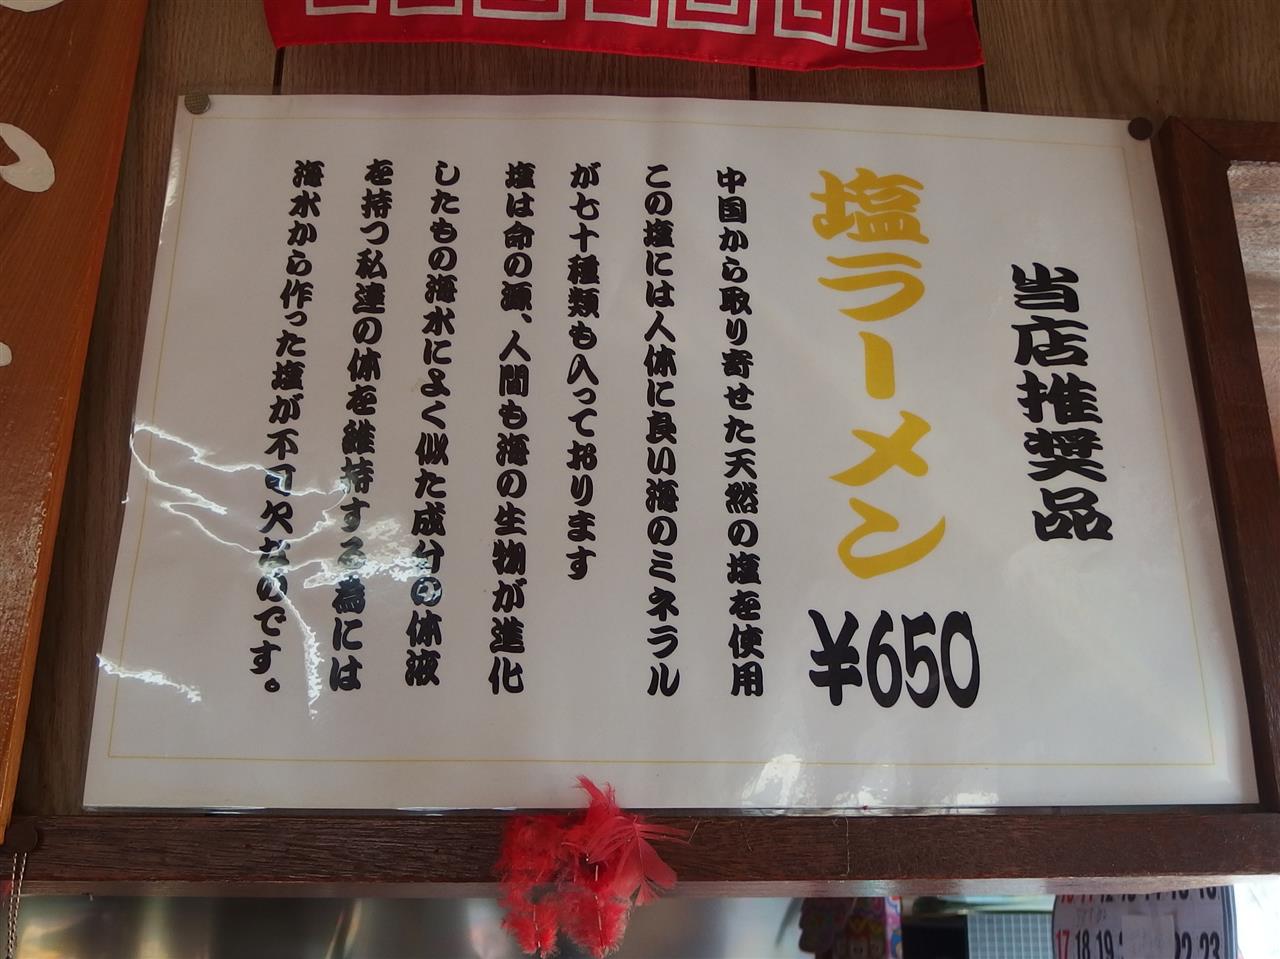 当店推奨品
塩ラーメン
¥650
中国から取り寄せた天然の塩を使用
この塩には人体に良い海のミネラル
が七十種類も入っております
塩は命の源、人間も海の生物が進化
したもの海水によく似た成分の体液
を持つ私達の体を維持する為には
海水から作った塩が不可欠なのです。
17 18 19 22 23